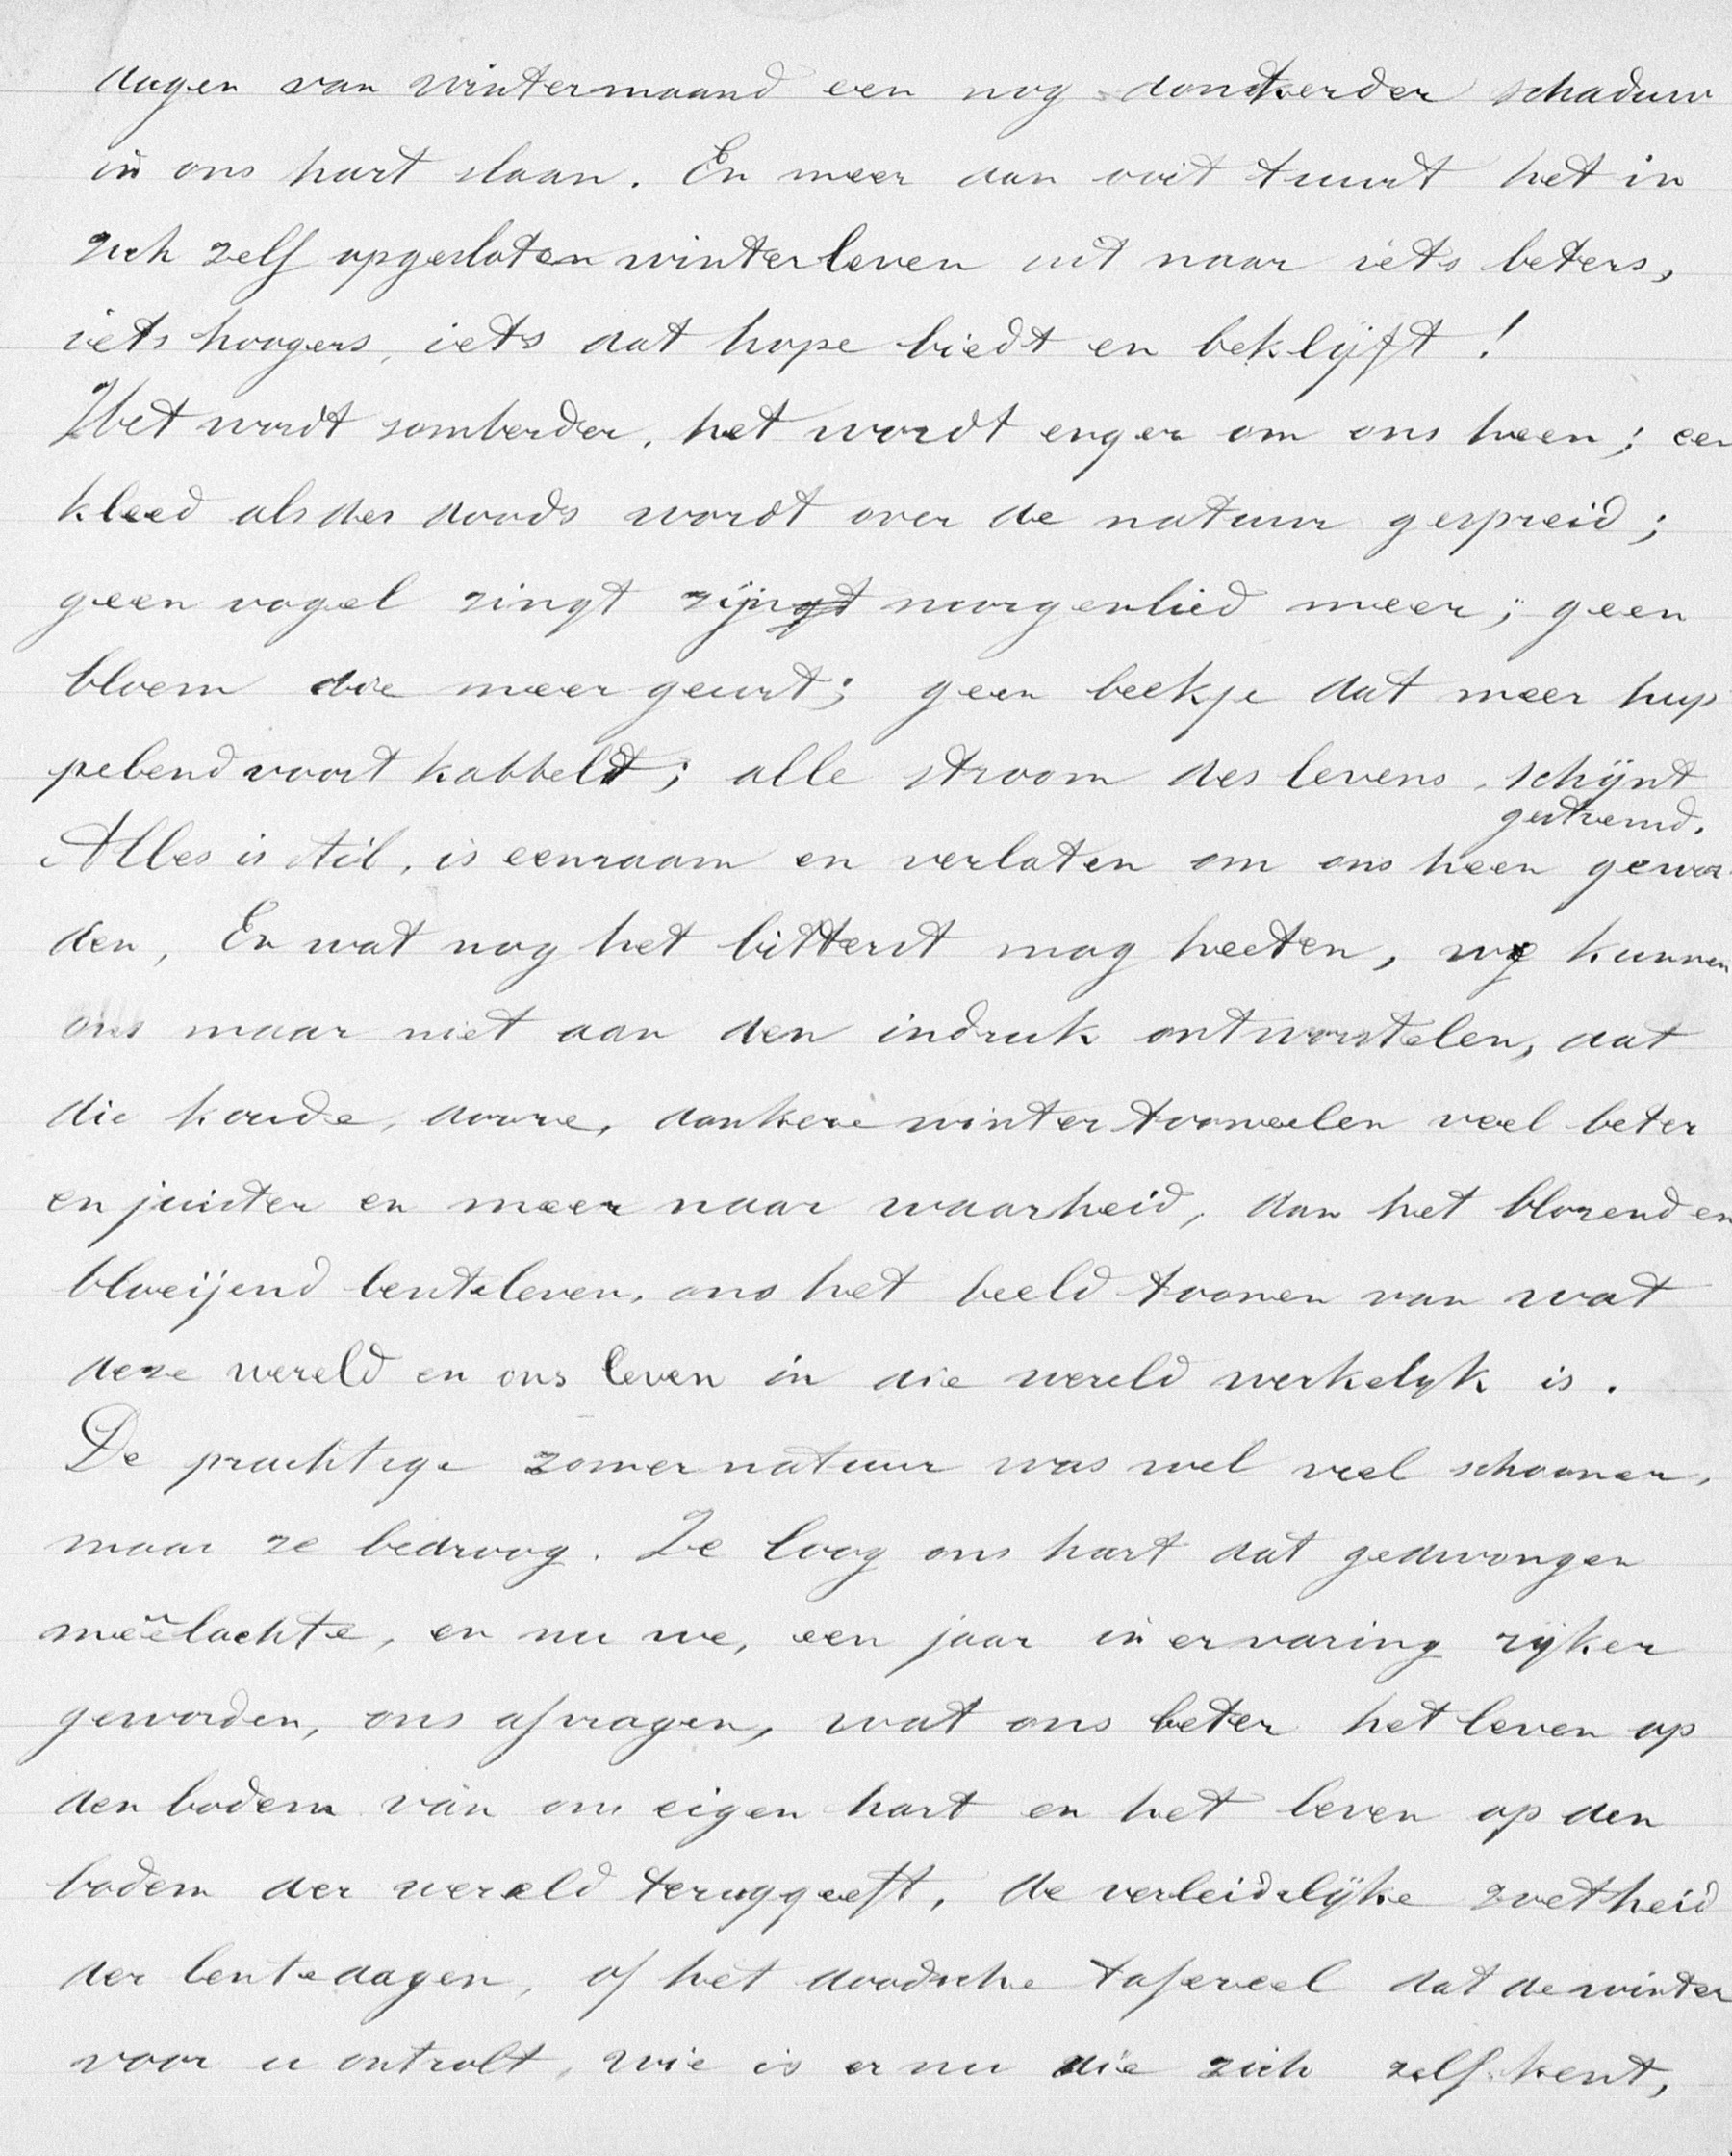 dagen van wintermaand een nog donkerder schaduw
in ons hart slaan. En meer dan ooit tuurt het in
zich zelf opgesloten winterleven uit naar iets beters,
iets hoogers, iets dat hope biedt en beklijft!
Het wordt somberder, het wordt enger om ons heen; een
kleed als des doods wordt over de natuur gespreid;
geen vogel zingt zijn morgenlied meer; geen
bloem die meer geurt; geen beekje dat meer hup
pelend voort kabbelt; alle stroom des levens schijnt
gestremd.
Alles is stil, is eenzaam en verlaten om ons heen gewor-
den, En wat nog het bitterst mag heeten, we kunnen
ons maar niet aan den indruk ontworstelen, dat
die koude, dorre, donkere wintertooneelen veel beter
en juister en meer naar waarheid, dan het blozend en
bloeijend lenteleven, ons het beeld toonen van wat
deze wereld en ons leven in die wereld werkelijk is.
De prachtige zomernatuur was wel veel schooner,
maar ze bedroog. Ze loog ons hart dat gedwongen
meêlachte, en nu we, een jaar in ervaring rijker
geworden, ons afvragen, wat ons beter het leven op
den bodem van ons eigen hart en het leven op den
bodem der wereld teruggeeft, de verleidelijke zoetheid
der lentedagen, of het doodsche tafereel dat de winter
voor u ontrolt, wie is er nu die zich zelf kent,